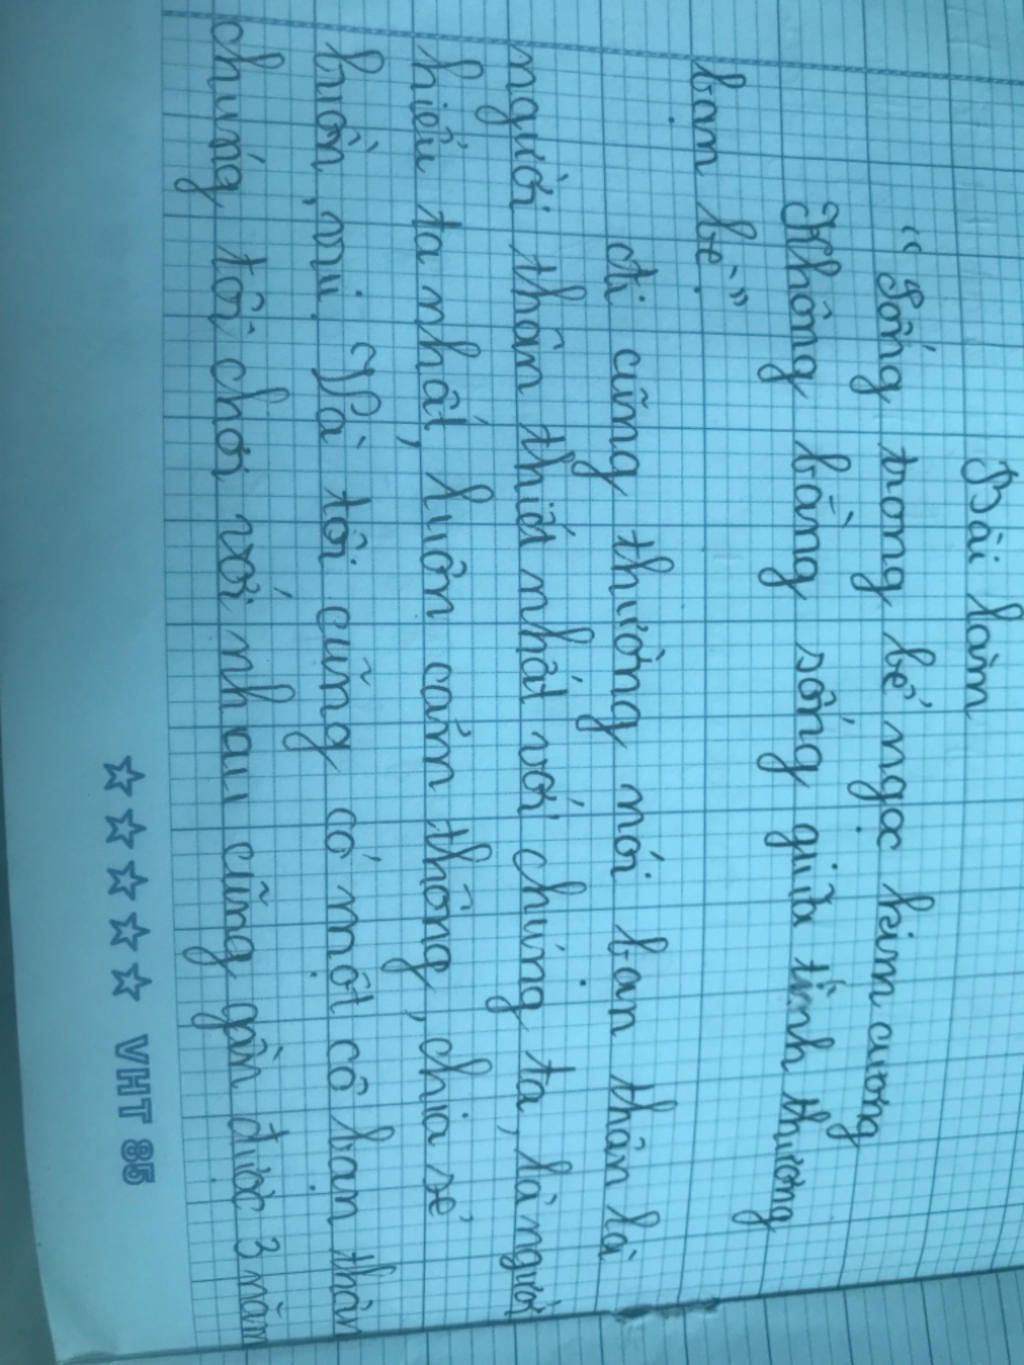 Bài làm
"Sống trong bể ngọc kim cương
Không bằng sống giữa tình thương
bạn bè"
Ai cũng thường nói bạn thân là
người thân thiết nhất với chúng ta, là người
hiểu ta nhất, luôn cảm thông, chia sẻ
buồn, vui. Và tôi cũng có một cô bạn thân
chúng tôi chơi với nhau cũng gần được 3 năm
☆☆☆☆☆ VHT 85